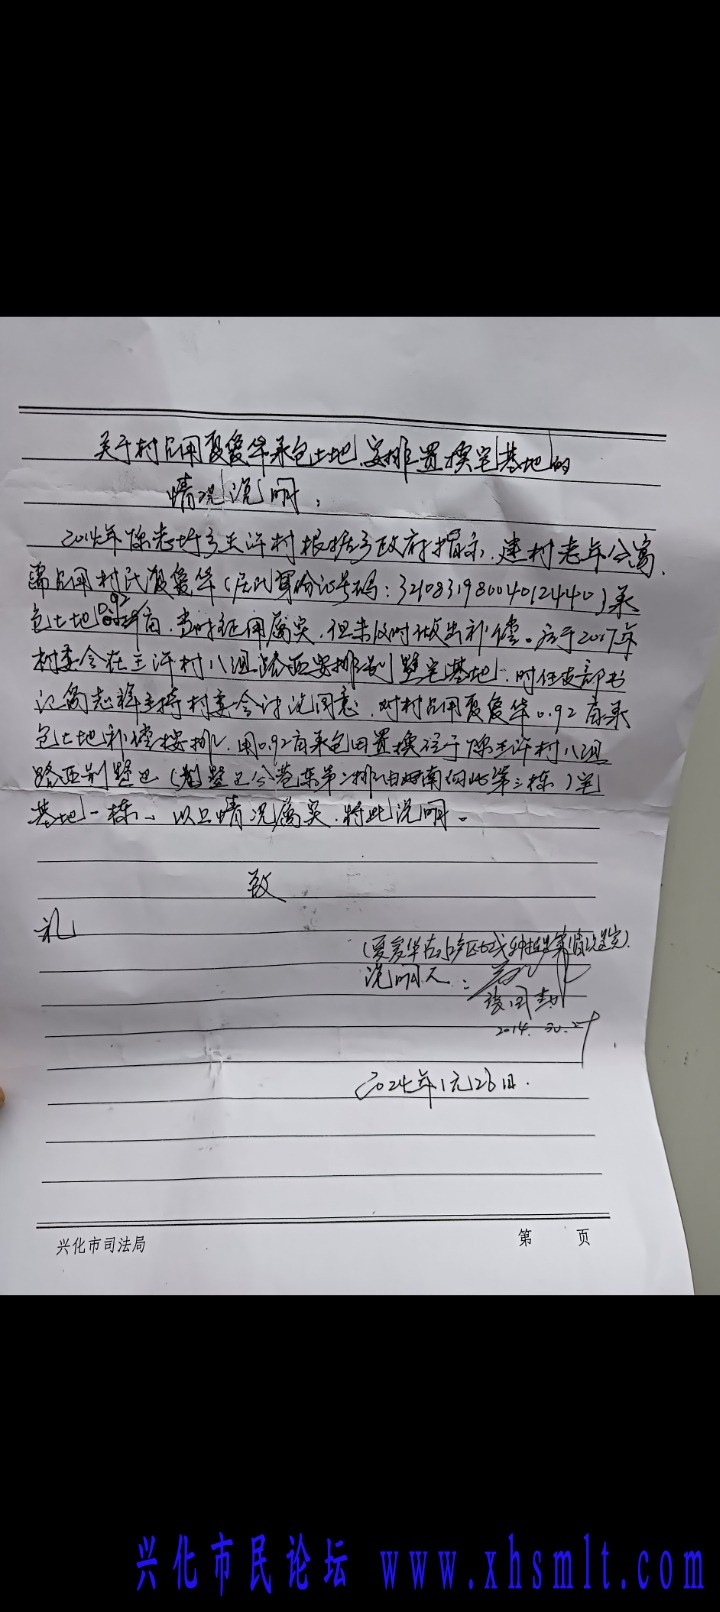 关于村占用夏爱华承包土地、安排置换宅基地的
情况说明:
2014年陈老圩乡王许村根据乡政府指示,建村老年公寓,
需占用村民夏爱华(居民身份证号码:321083198004012440)承
包土地0.92亩,当时征用属实,但未及时做出补偿。后于2017年
村委会在王许村八组路西安排别墅宅基地,时任支部书
记 志祥主持村委会讨论同意,对村占用夏爱华0.92亩承
包土地补偿安排,用0.92亩承包田置换位于陈王许村八组
路西别墅区(别墅区 东第二排由西南向北第三栋)宅
基地一栋、以上情况属实,特此说明。
致
礼
(夏爱华
说明人:
2014.
2024年1月26日.
兴化市司法局 第 页
兴化市民论坛 www.xhsmlt.com